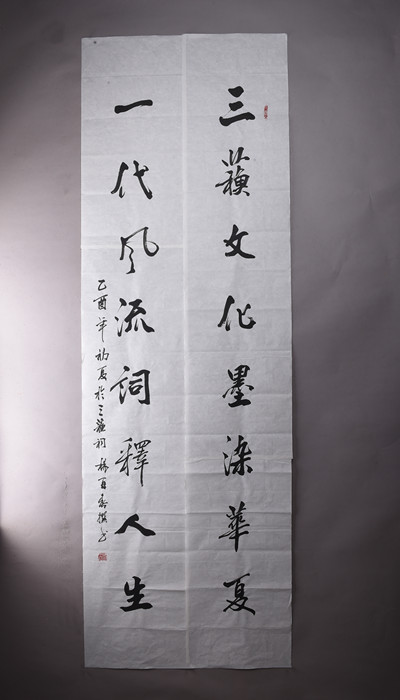 三蘇文化墨染華夏
一代风流詞釋人生
乙酉年初夏於三蘇祠 楊百香撰书